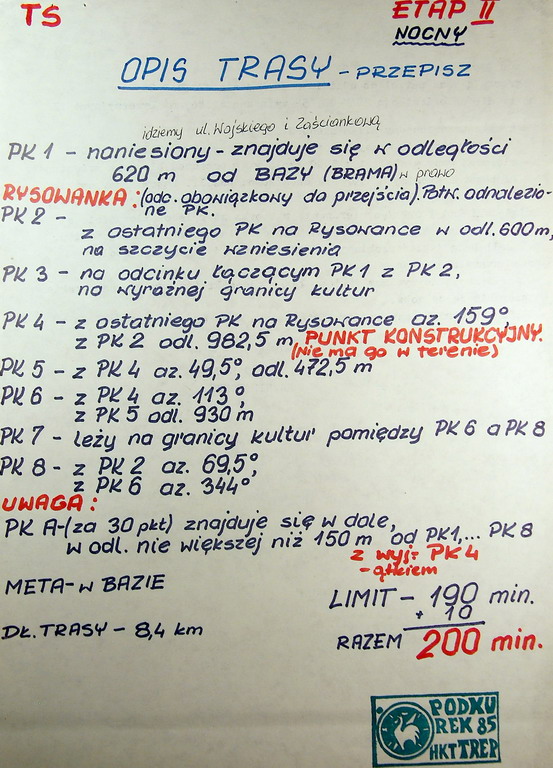 TS
ETAP II
NOCNY
OPIS TRASY - PRZEPISZ
idziemy ul. Wojskiego i Zaściankową
PK 1 - naniesiony - znajduje się w odległości
620 m od BAZY (BRAMA) w prawo
RYSOWANKA: (odc. obowiązkowy do przejścia). Potw. odnalezio-
PK 2 - ne PK.
z ostatniego PK na Rysowance w odl. 600m,
na szczycie wzniesienia
PK 3 - na odcinku łączącym PK1 z PK2,
na wyraźnej granicy kultur
PK 4 - z ostatniego PK na Rysowance az. 159°,
z PK 2 odl. 982,5 m, PUNKT KONSTRUKCYJNY.
(Nie ma go w terenie)
PK 5 - z PK 4 az. 49,5°, odl. 472,5 m
PK 6 - z PK 4 az. 113°,
z PK 5 odl. 930 m
PK 7 - leży na granicy kultur pomiędzy PK 6 a PK 8
PK 8 - z PK 2 az. 69,5°,
z PK 6 az. 344°
UWAGA:
PK A-(za 30 pkt) znajduje się w dole,
w odl. nie większej niż 150 m od PK1,... PK 8
z wyj- PK 4
-ątkiem
META- w BAZIE
LIMIT - 190 min.
+ 10
DŁ. TRASY - 8,4 km
RAZEM 200 min.
PODKU
REK 85
HKT TREP